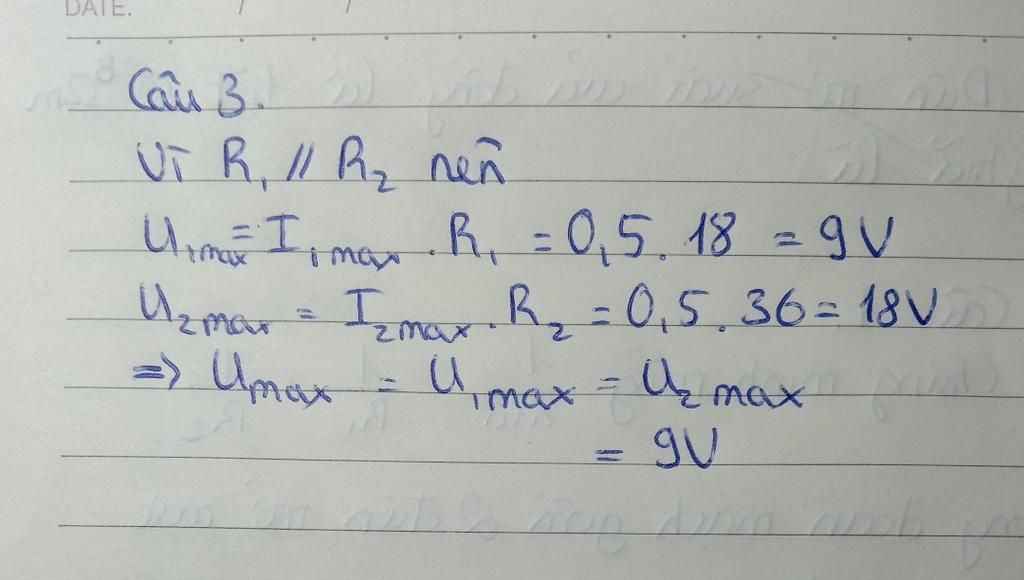 DATE. / /
Câu 3.
Vì R₁ // R₂ nên
U₁max = I₁max . R₁ = 0,5 . 18 = 9V
U₂max = I₂max . R₂ = 0,5 . 36 = 18V
=> Umax = U₁max = U₂max
= 9V